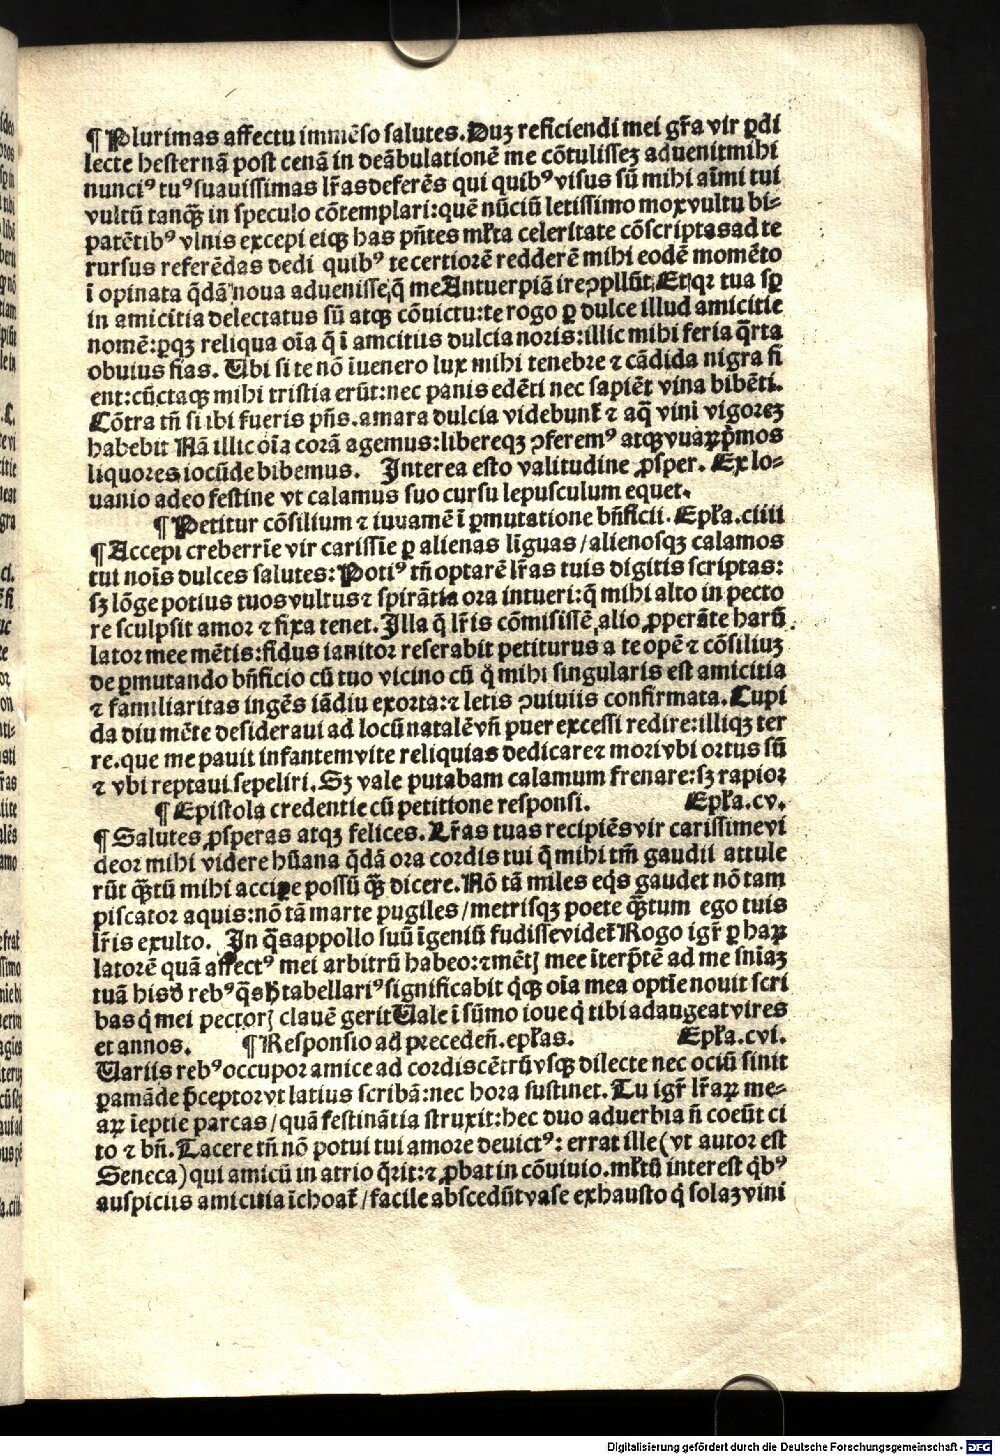 ¶ Plurimas affectu immēso salutes. Duꝫ reficiendi mei gr̄a vir ꝑdi
lecte hesternā post cenā in deābulationē me cōtulisseꝫ aduenit mihi
nunciꝰ tuꝰ suauissimas lr̄as deferēs qui quibꝰ visus sū mihi aīmi tui
vultū tanqꝫ̄ in speculo cōtemplari: quē nūciū letissimo mox vultu bi⸗
patētibꝰ vlnis excepi eiqꝫ has pn̄tes ml̄ta celeritate cōscriptas ad te
rursus referēdas dedi quibꝰ te certiorē redderē mihi eodē momēto
ī opinata q̄dā noua aduenisse q̄ me Antuerpiā ire ꝯpllūt. Et qꝛ tua sꝑ
in amicitia delectatus sū atqꝫ cōuictu: te rogo ꝑ dulce illud amicitie
nomē: ꝑqꝫ reliqua oīa q̄ ī amcitiis dulcia noris: illic mihi feria q̄rta
obuius fias. Ubi si te nō īuenero lux mihi tenebre ⁊ cādida nigra fi
ent: cūctaqꝫ mihi tristia erūt: nec panis edēti nec sapiēt vina bibēti.
Cōtra tn̄ si ibi fueris pn̄s. amara dulcia videbunt̄ ⁊ aq̄ vini vigoreꝫ
habebit Nā illic oīa corā agemus: libereqꝫ ꝯferemꝰ atqꝫ vuaꝝ pͥmos
liquores iocūde bibemus. Interea esto valitudine ꝓsper. Ex lo⸗
uanio adeo festine vt calamus suo cursu lepusculum equet.
¶ Petitur cōsilium ⁊ iuuamē ī ꝑmutatione bn̄ficii. Epl̄a. ciiii
¶ Accepi creberrīe vir carissīe ꝑ alienas līguas / alienosqꝫ calamos
tui noīs dulces salutes: Potiꝰ tn̄ optarē lr̄as tuis digitis scriptas:
sꝫ lōge potius tuos vultus ⁊ spirātia ora intueri: q̄ mihi alto in pecto
re sculpsit amor ⁊ fixa tenet. Illa q̄ lr̄is cōmisissē alio ꝓperāte harū
lator mee mētis: fidus ianitor referabit petiturus a te opē ⁊ cōsiliuꝫ
de ꝑmutando bn̄ficio cū tuo vicino cū qͦ mihi singularis est amicitia
⁊ familiaritas ingēs iādiu exorta: ⁊ letis ꝯuiuiis confirmata. Cupi
da diu mēte desideraui ad locū natalē vn̄ puer excessi redire: illiqꝫ ter
re. que me pauit infantem vite reliquias dedicare ⁊ mori vbi ortus sū
⁊ vbi reptaui sepeliri. Sꝫ vale putabam calamum frenare: sꝫ rapior
¶ Epistola credentie cū petitione responsi. Epl̄a. cv.
¶ Salutes ꝓsperas atqꝫ felices. Lr̄as tuas recipiēs vir carissime vi
deor mihi videre hūana q̄dā ora cordis tui q̄ mihi tm̄ gaudii attule
rūt qꝫ̄tū mihi accipe possū qꝫ̄ dicere. Nō tā miles eqͥs gaudet nō tam
piscator aquis: nō tā marte pugiles / metrisqꝫ poete qꝫ̄tum ego tuis
lr̄is exulto. In qͥs appollo suū īgeniū fudisse videt̄ Rogo igr̄ ꝑ haꝝ
latorē quā affectꝰ mei arbitrū habeo: ⁊ mētꝭ mee īterp̄tē ad me sn̄iaꝫ
tuā his đ rebꝰ qͥs ħ tabellariꝰ significabit qͥqꝫ oīa mea optīe nouit scri
bas qͥ mei pectorꝭ clauē gerit Uale ī sūmo ioue qͥ tibi adaugeat vires
et annos. ¶ Responsio ad preceden̄. epl̄as. Epl̄a. cvi.
Uariis rebꝰ occupor amice ad cor discētrū vsqꝫ dilecte nec ociū sinit
ꝑamāde p̄ceptor vt latius scribā: nec hora sustinet. Tu igr̄ lr̄aꝝ me⸗
aꝝ īeptie parcas / quā festinātia struxit: hec duo aduerbia n̄ coeūt ci
to ⁊ bn̄. Tacere tn̄ nō potui tui amore deuictꝰ: errat ille (vt autor est
Seneca) qui amicū in atrio q̄rit: ⁊ ꝓbat in cōuiuio. ml̄tū interest qͥbꝰ
auspiciis amicitia īchoat̄ / facile abscedūt vase exhausto qͥ solaꝫ vini